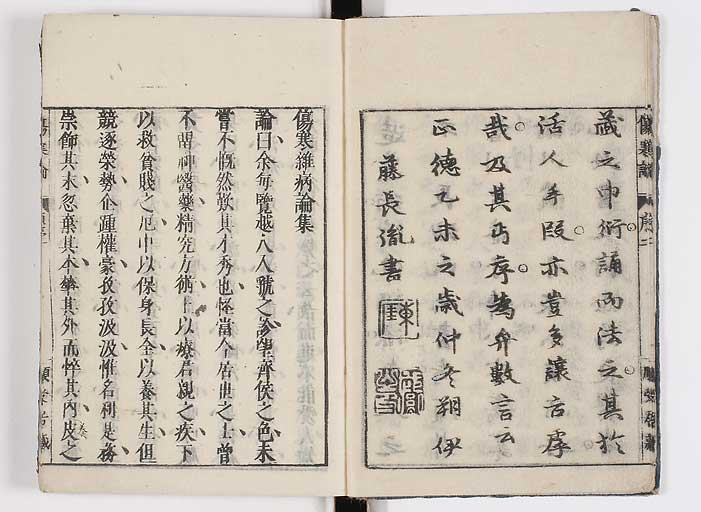 蔵之巾衍誦而法之其於
活人手段亦豈多讓古房
哉及其丐序為弁數言云
正德乙未之歲仲冬朔伊
藤長胤書
傷寒論
傷寒雜病論集
論曰余每覽越人入虢之診望齊侯之色未
嘗不慨然歎其才秀也怪當今居世之士曾
不留神醫藥精究方術上以療君親之疾下
以救貧賤之厄中以保身長全以養其生但
競逐榮勢企踵權豪孜孜汲汲惟名利是務
崇飾其末忽棄其本華其外而悴其內皮之
傷寒論